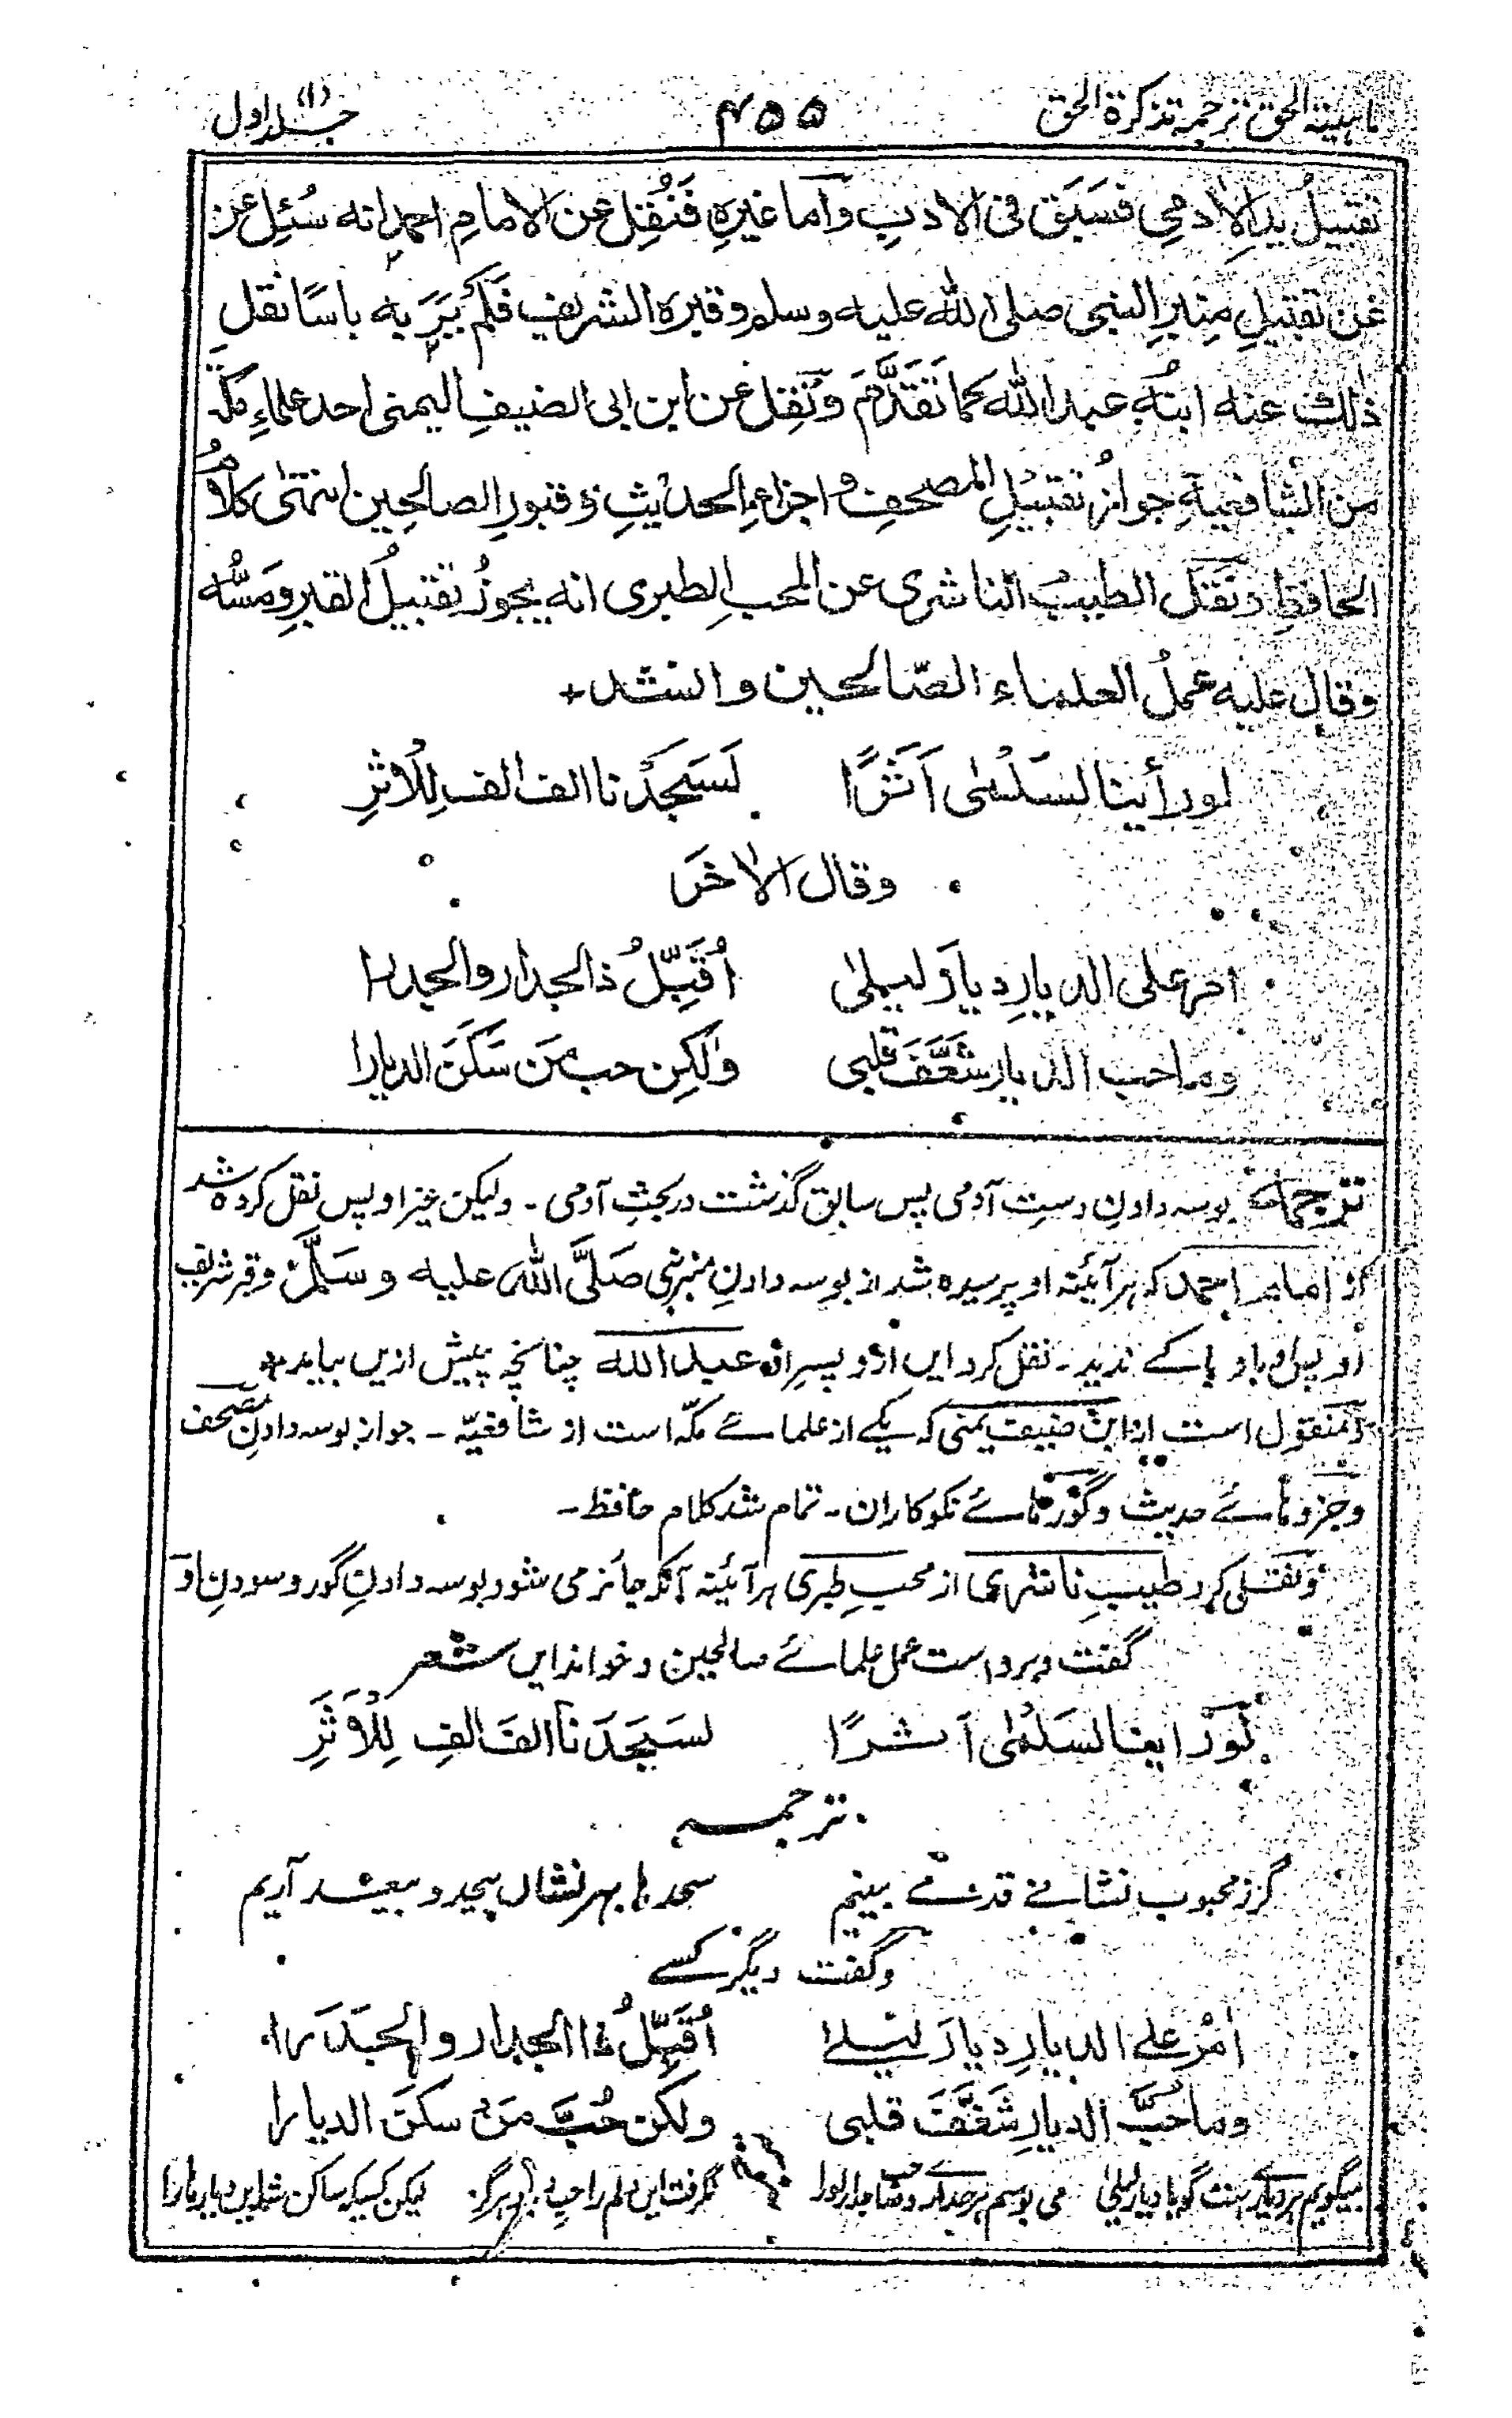 ماہیتہ الحق ترجمہ تذکرۃ الحق ۴۵۵ جلد اول (۱)
تقبیلُ یدِ الاٰدمی فسَبَق فی الادبِ واَما غیرِہٖ فَنُقِل عن الامامِ احمد انہ سُئِل عن
عَن تقبیلِ مِنبرِ النبی صلی اللہ علیہ وسلم وقبرہ الشریف فَلَم یَرَ بہ باسًا نقل
ذٰلک عنہ ابنُہٗ عبد اللہ کما تَقَدَّمَ وَنُقِل عن ابن ابی الضیفِ الیمنی احد علماءِ مکۃ
من الشّافعیۃِ جوازُ تقبیلِ المصحفِ واجزاءِ الحدیثِ وقبورِ الصالحِین انتہٰی کلامُ
الحافظِ ونَقَل الطیبُ الناشری عن المحب الطبری انہ یجوزُ تقبیلُ القبرِ ومَسُّہ
وقال علیہ عملُ العلماء الصّالحین وانشد+
لو رأینا لسَلْمٰی اَثَرًا لَسَجَدْنا الف الف لِلاَثرِ
وقال الاٰخَر
امر علی الدیارِ دیارَ لیلیٰ اُقَبِّلُ ذا الجدار والجدرا
وما حب الدیار شَغَّفَ قلبی ولٰکِن حب مَن سَکَنَ الدیارا
ترجمہ بوسہ دادنِ دستِ آدمی پس سابق گذشت در بحثِ آدمی۔ ولیکن غیر او پس نقل کردہ شد
از امام احمد کہ ہر آئینہ او پرسیدہ شد از بوسہ دادنِ منبرِ نبی صَلَّی اللہ علیہ وسَلَّم وقبر شریف
او پس او باو باکے ندید۔ نقل کرد ایں ازو پسرِ او عبد اللہ چنانچہ پیش ازیں بیاید٭
ومنقول است از ابن ضیف یمنی کہ یکے از علمائے مکّہ است از شافعیّہ۔ جواز بوسہ دادنِ مصحف
وجزوہائے حدیث وگورہائے نکوکاران۔ تمام شد کلام حافظ۔
ونقل کرد طیبِ ناشری از محبِ طبری ہر آئینہ آنکہ جائز می شود بوسہ دادنِ گور وسودنِ او
گفت وبرو است عمل علمائے صالحین وخواند ایں شعر
لَو رَاینا لسَلْمٰی اَثرًا لسَجَدَنا الفَ الفِ لِلْاَثَرِ
ترجمہ
گر ز محبوب نشانے قدمے بینم سجدہا بہر نشاں بیحد و بیعد آریم
وگفت دیگر کسے
اَمُرُّ علے الدیارِ دیارَ لیلےٰ اُقَبِّلُ ذا الجدار والجَدَرا
وما حُبَّ الدیارِ شَغَّفَ قلبی ولکن حُبَّ مَن سکَنَ الدیارا